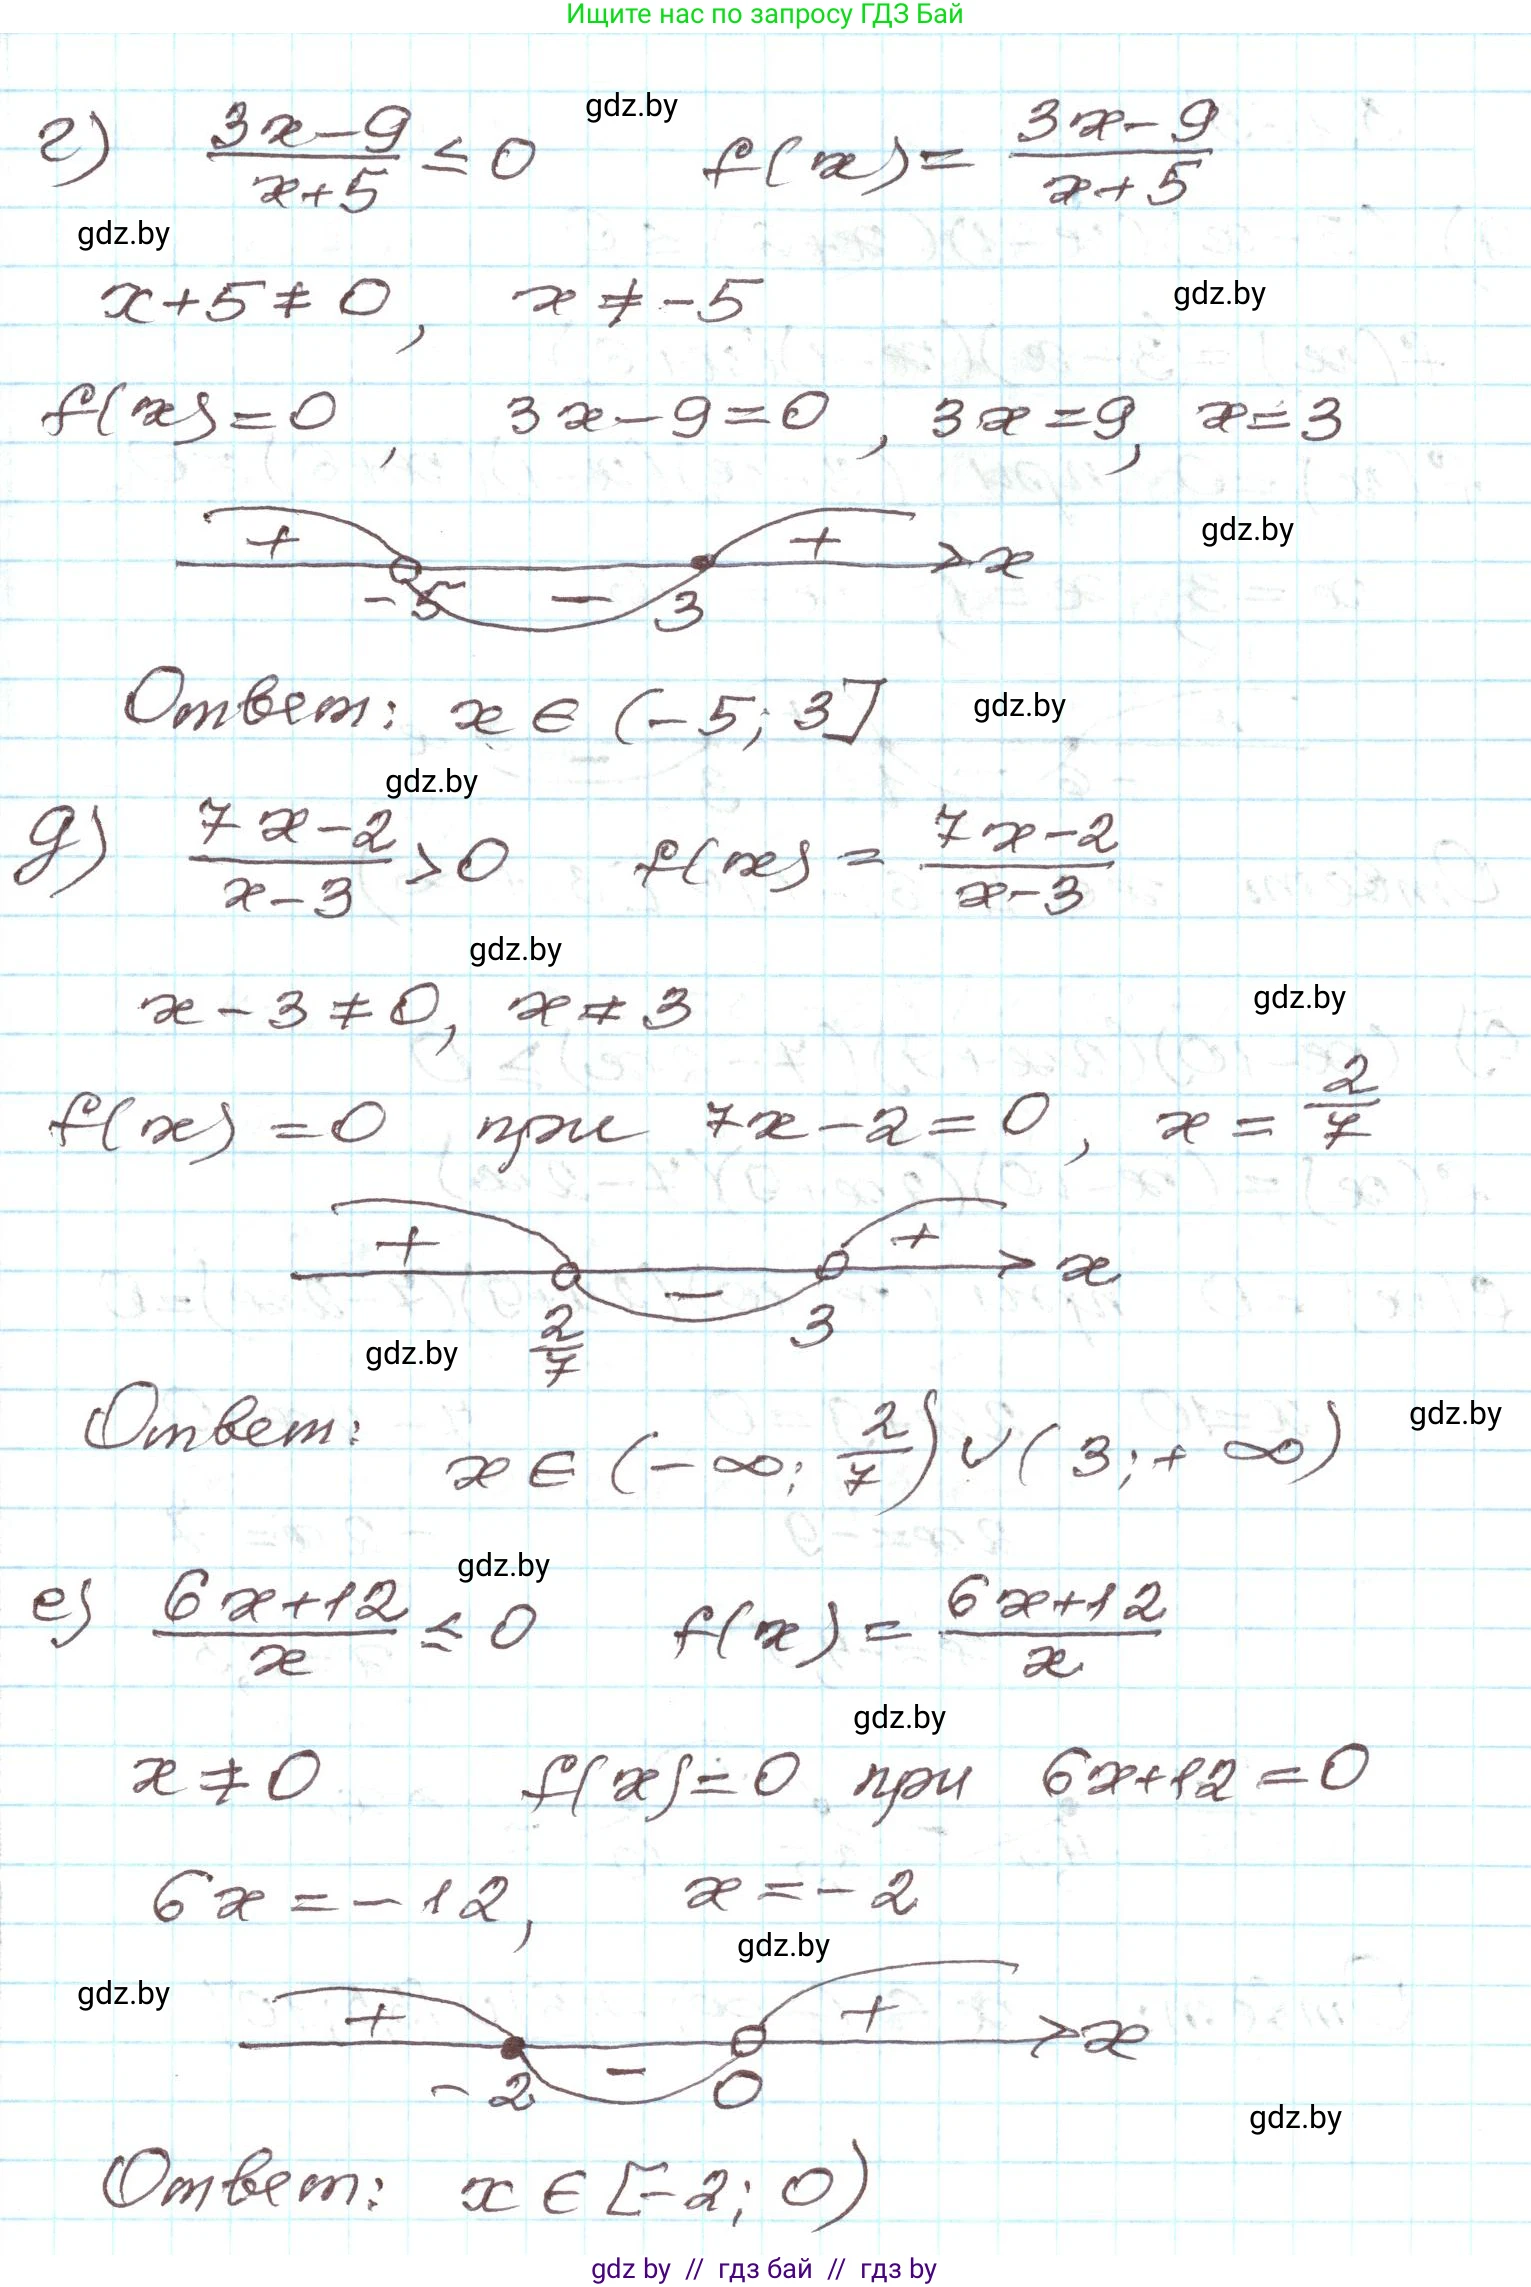 Ищите нас по запросу ГДЗ Бай
gdz.by
г) (3x-9)/(x+5) ≤ 0 f(x) = (3x-9)/(x+5)
gdz.by
x+5≠0, x≠-5 gdz.by
f(x)=0, 3x-9=0, 3x=9, x=3
+ + gdz.by
x
-5 - 3
Ответ: x ∈ (-5; 3] gdz.by
gdz.by
д) (7x-2)/(x-3) > 0 f(x) = (7x-2)/(x-3)
gdz.by
x-3≠0, x≠3 gdz.by
f(x)=0 при 7x-2=0, x = 2/7
+ +
x
-
2/7 3
gdz.by
Ответ: gdz.by
x ∈ (-∞; 2/7) ∪ (3; +∞)
gdz.by
е) (6x+12)/x ≤ 0 f(x) = (6x+12)/x
gdz.by
x≠0 f(x)=0 при 6x+12=0
6x=-12, x=-2
gdz.by
gdz.by
+ +
x
-2 - 0
gdz.by
Ответ: x ∈ [-2; 0)
gdz by // гдз бай // гдз by